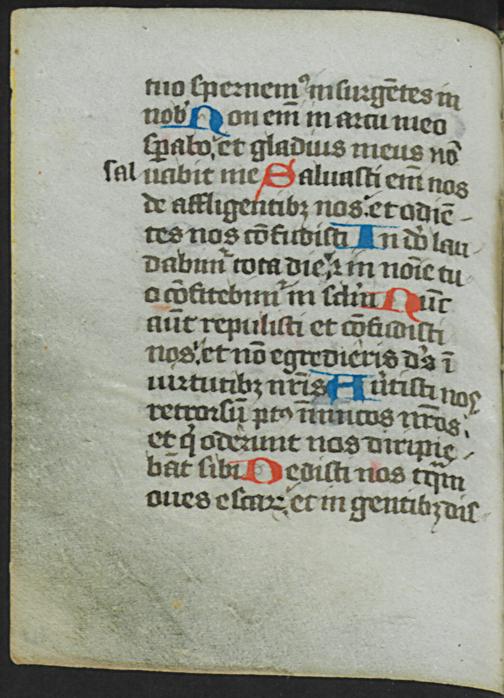 tuo spernem⁹ insurgẽtes in
nob᷒ Non em̃ in arcu meo
sꝑabo, et gladius meus nõ
saluabit me Saluasti em̃ nos
de affligentibꝫ nos: et odiẽ-
tes nos cõfudisti In dõ lau
dabim᷒ tota die, ⁊ in nõie tu
o cõfitebim᷒ in sclm̃ Nũc
aũt repulisti et cõfudisti
nos, et nõ egredieris ds̃ ĩ
uirtutibꝫ nr̃is Auertisti nos
retrorsũ pt⁹ inimicos nr̃os,
et q̇ oderunt nos diripie-
bãt sibi Dedisti nos tq̃m
oues escaꝝ, et in gentibꝫ dis